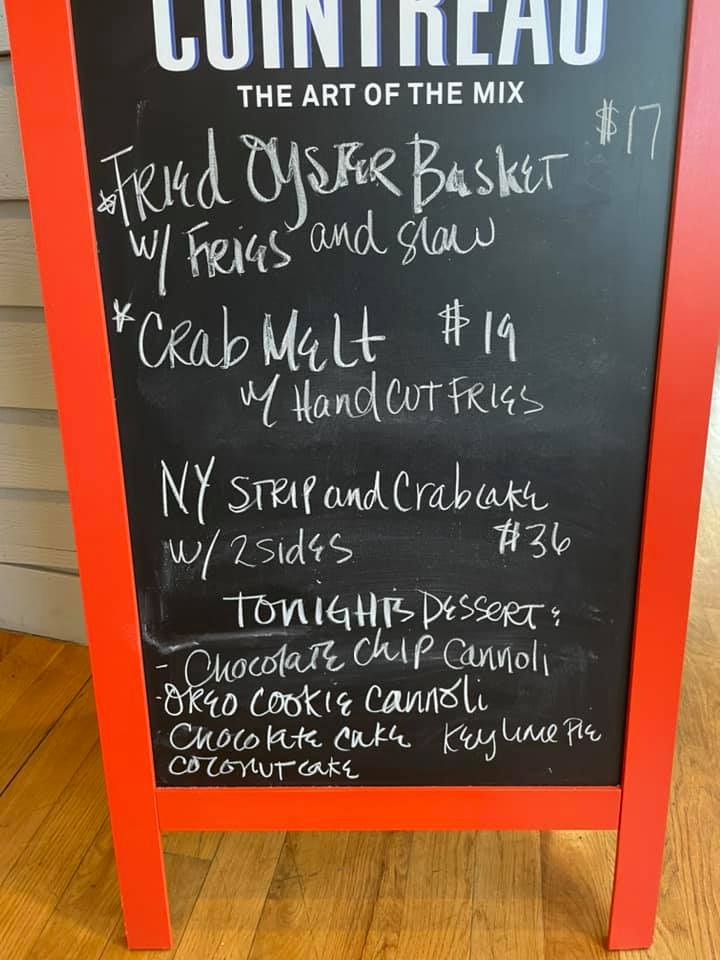 COINTREAU
THE ART OF THE MIX
$17
*Fried Oyster Basket
w/ Fries and slaw
*Crab Melt $19
w/ Hand cut Fries
NY Strip and Crabcake
w/ 2 sides $36
Tonight's Dessert:
- Chocolate Chip Cannoli
-Oreo Cookie Cannoli
Chocolate cake Key lime Pie
coconut cake